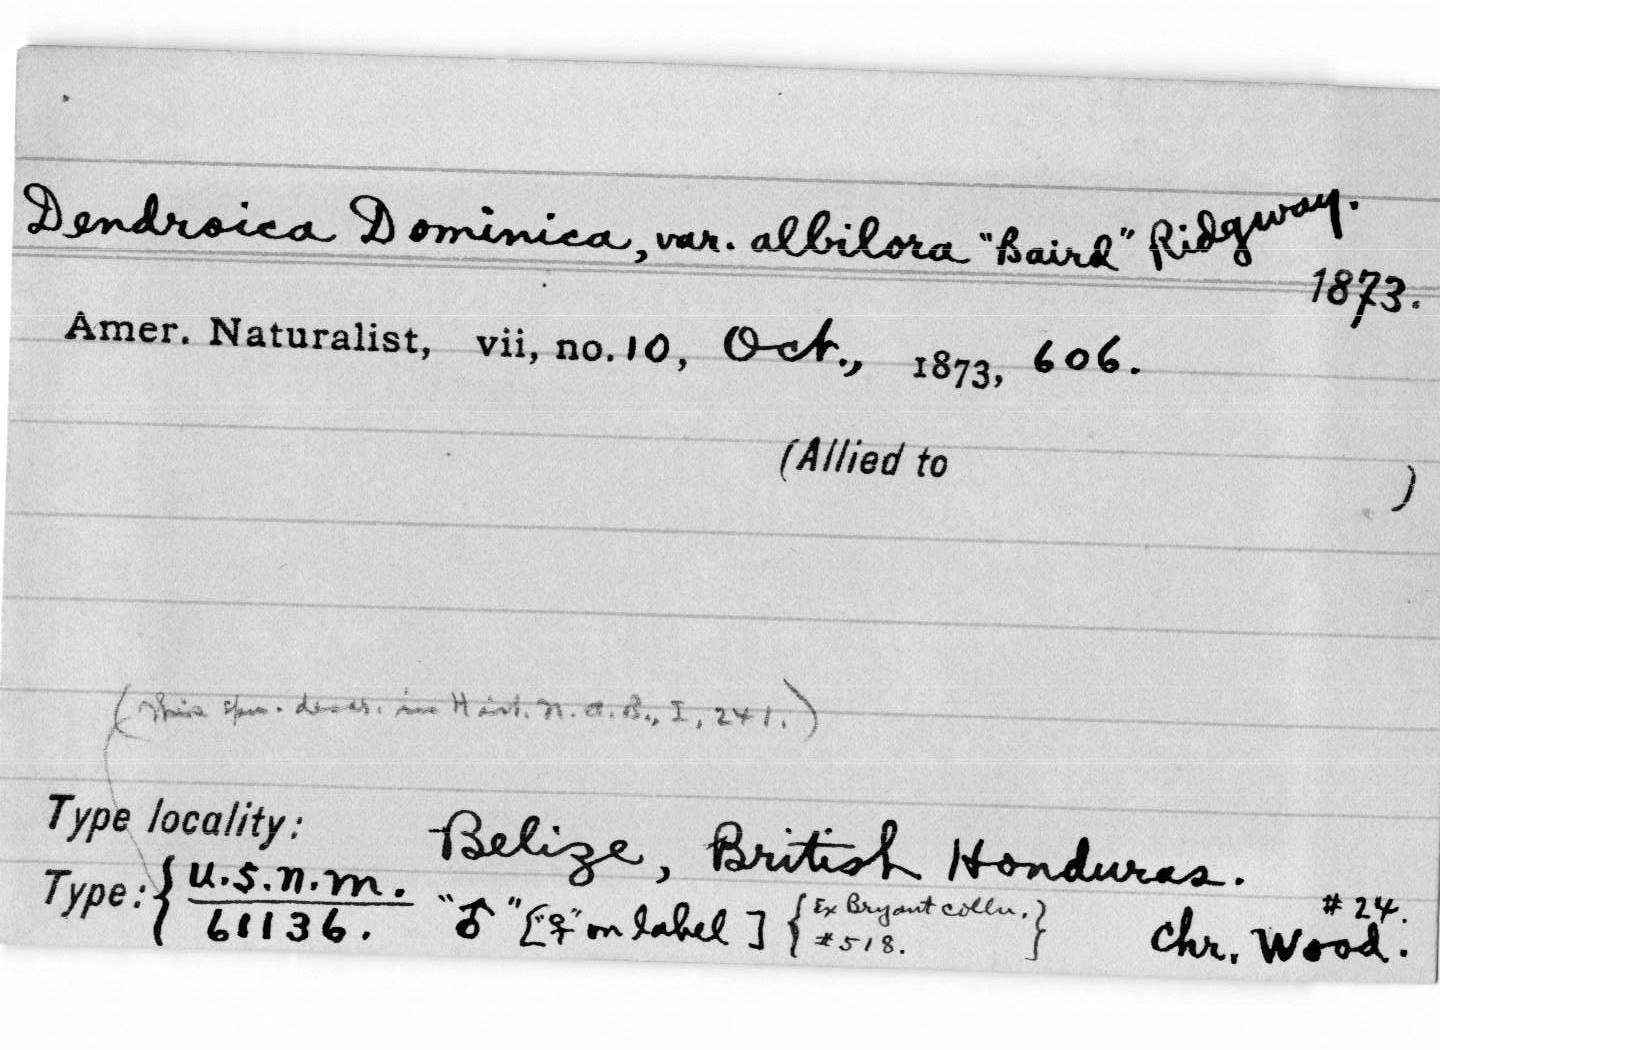 Dendroica Dominica, var. albilora "Baird" Ridgway.
1873.
Amer. Naturalist, vii, no. 10, Oct., 1873, 606.
(Allied to )
(This spm. descr. in Hist. N. A. B., I, 241.)
Type locality:
Belize, British Honduras.
Type: { U.S.N.M. "♂" ["♀" on label] { Ex Bryant colln. } #24.
61136. #518. Chr. Wood.